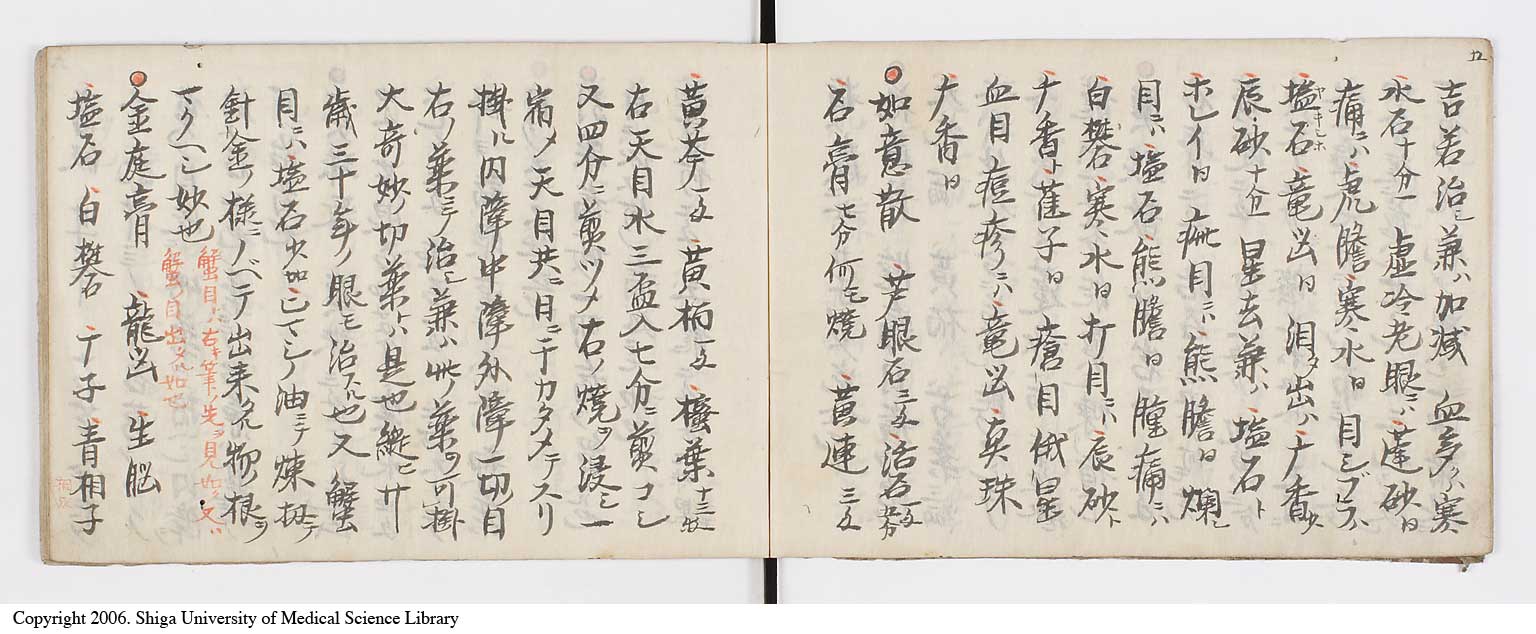 五二
吉若治シ兼ハ加減 血多クハ寒
水石十分一 虚冷老眼ニハ蓬砂日
痛ニハ虎膽寒水日 目シブラハ
塩石竜凶日 泪タ出ハ丁香少
ヤキシホ
辰砂十分一 星去兼ハ 塩石ト
ホシイ日 疵目ニハ熊膽日 爛シ
目ニハ塩石熊膽日 腫痛ニハ
白礬寒水日 打目ニハ辰砂ト
丁香ト萑子日 瘡目俄星
血目痘疹ニハ竜凶真珠
丁香日
如意散 芦眼石三匁 滑石一匁廿分
石膏七分何モ焼 黄連三匁
黄芩一匁 黄柏一匁 榁葉十三枚
右天目水三盃入七分ニ煎コシ
又四分ニ煎ツメ右ノ焼ヲ浸シ一
宿〆天目共ニ日ニ干カタメテスリ
掛ル内障中障外障一切目
右ノ薬ニテ治シ兼ハ此ノ薬ヲ可掛
大奇妙切薬ハ是也縦ニ廿
歳三十年ノ眼モ治スル也又 蟹
目ニハ塩石少加ヘテシノ油ニテ煉扨テ
針金ノ様ニノベテ出来ル物根ヲ
マクヘシ妙也
蟹目ハ右ノ筆ノ先ヲ見如ク又ハ
蟹ノ目出タル如也
金庭膏 龍凶 生脳
塩石 白礬 丁子 青相子